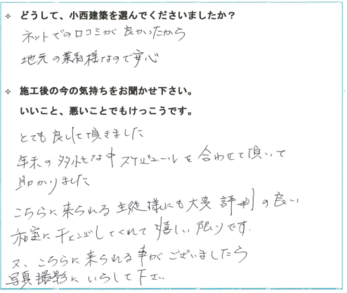 ❖ どうして、小西建築を選んでくださいましたか？
ネットでの口コミが良かったから
地元の業者様なので安心
❖ 施工後の今の気持ちをお聞かせ下さい。
いいこと、悪いことでもけっこうです。
とても良くして頂きました
年末の多忙な中スケジュールを合わせて頂いて
助かりました
こちらに来られる生徒様にも大変評判の良い
お室にチェンジしてくれて嬉しい限りです.
又、こちらに来られる事がございましたら
写真撮影にいらして下さい